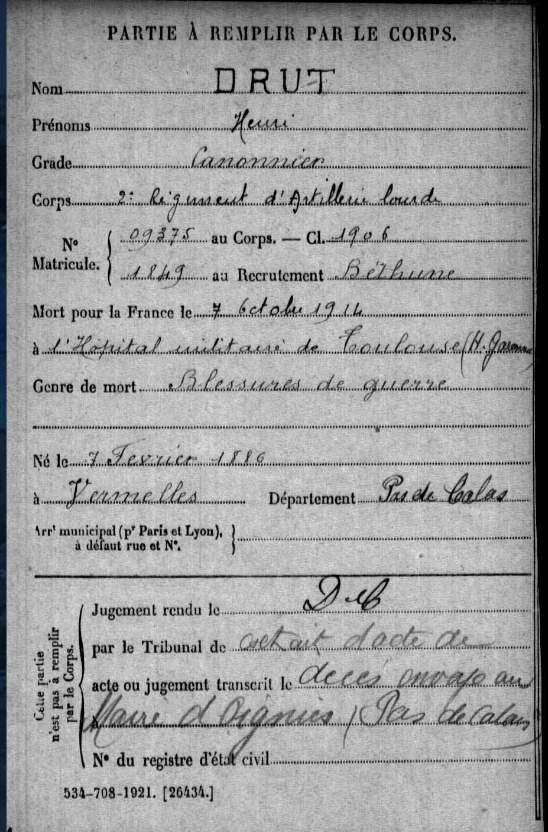 PARTIE À REMPLIR PAR LE CORPS.
Nom DRUT
Prénoms Henri
Grade Canonnier
Corps 2e Régiment d'Artillerie lourde
N° Matricule. { 09375 au Corps. — Cl. 1906
1849 au Recrutement Béthune
Mort pour la France le 7 Octobre 1914
à l'Hôpital militaire de Toulouse (H. Garonne)
Genre de mort Blessures de guerre
Né le 7 Fevrier 1886
à Vermelles Département Pas de Calais
Arrt municipal (pr Paris et Lyon), à défaut rue et N°. }
Cette partie n'est pas à remplir par le Corps.
Jugement rendu le
par le Tribunal de extrait d'acte de
acte ou jugement transcrit le décès envoyé au
Maire d'Oignies (Pas de Calais)
N° du registre d'état civil
534-708-1921. [26434.]